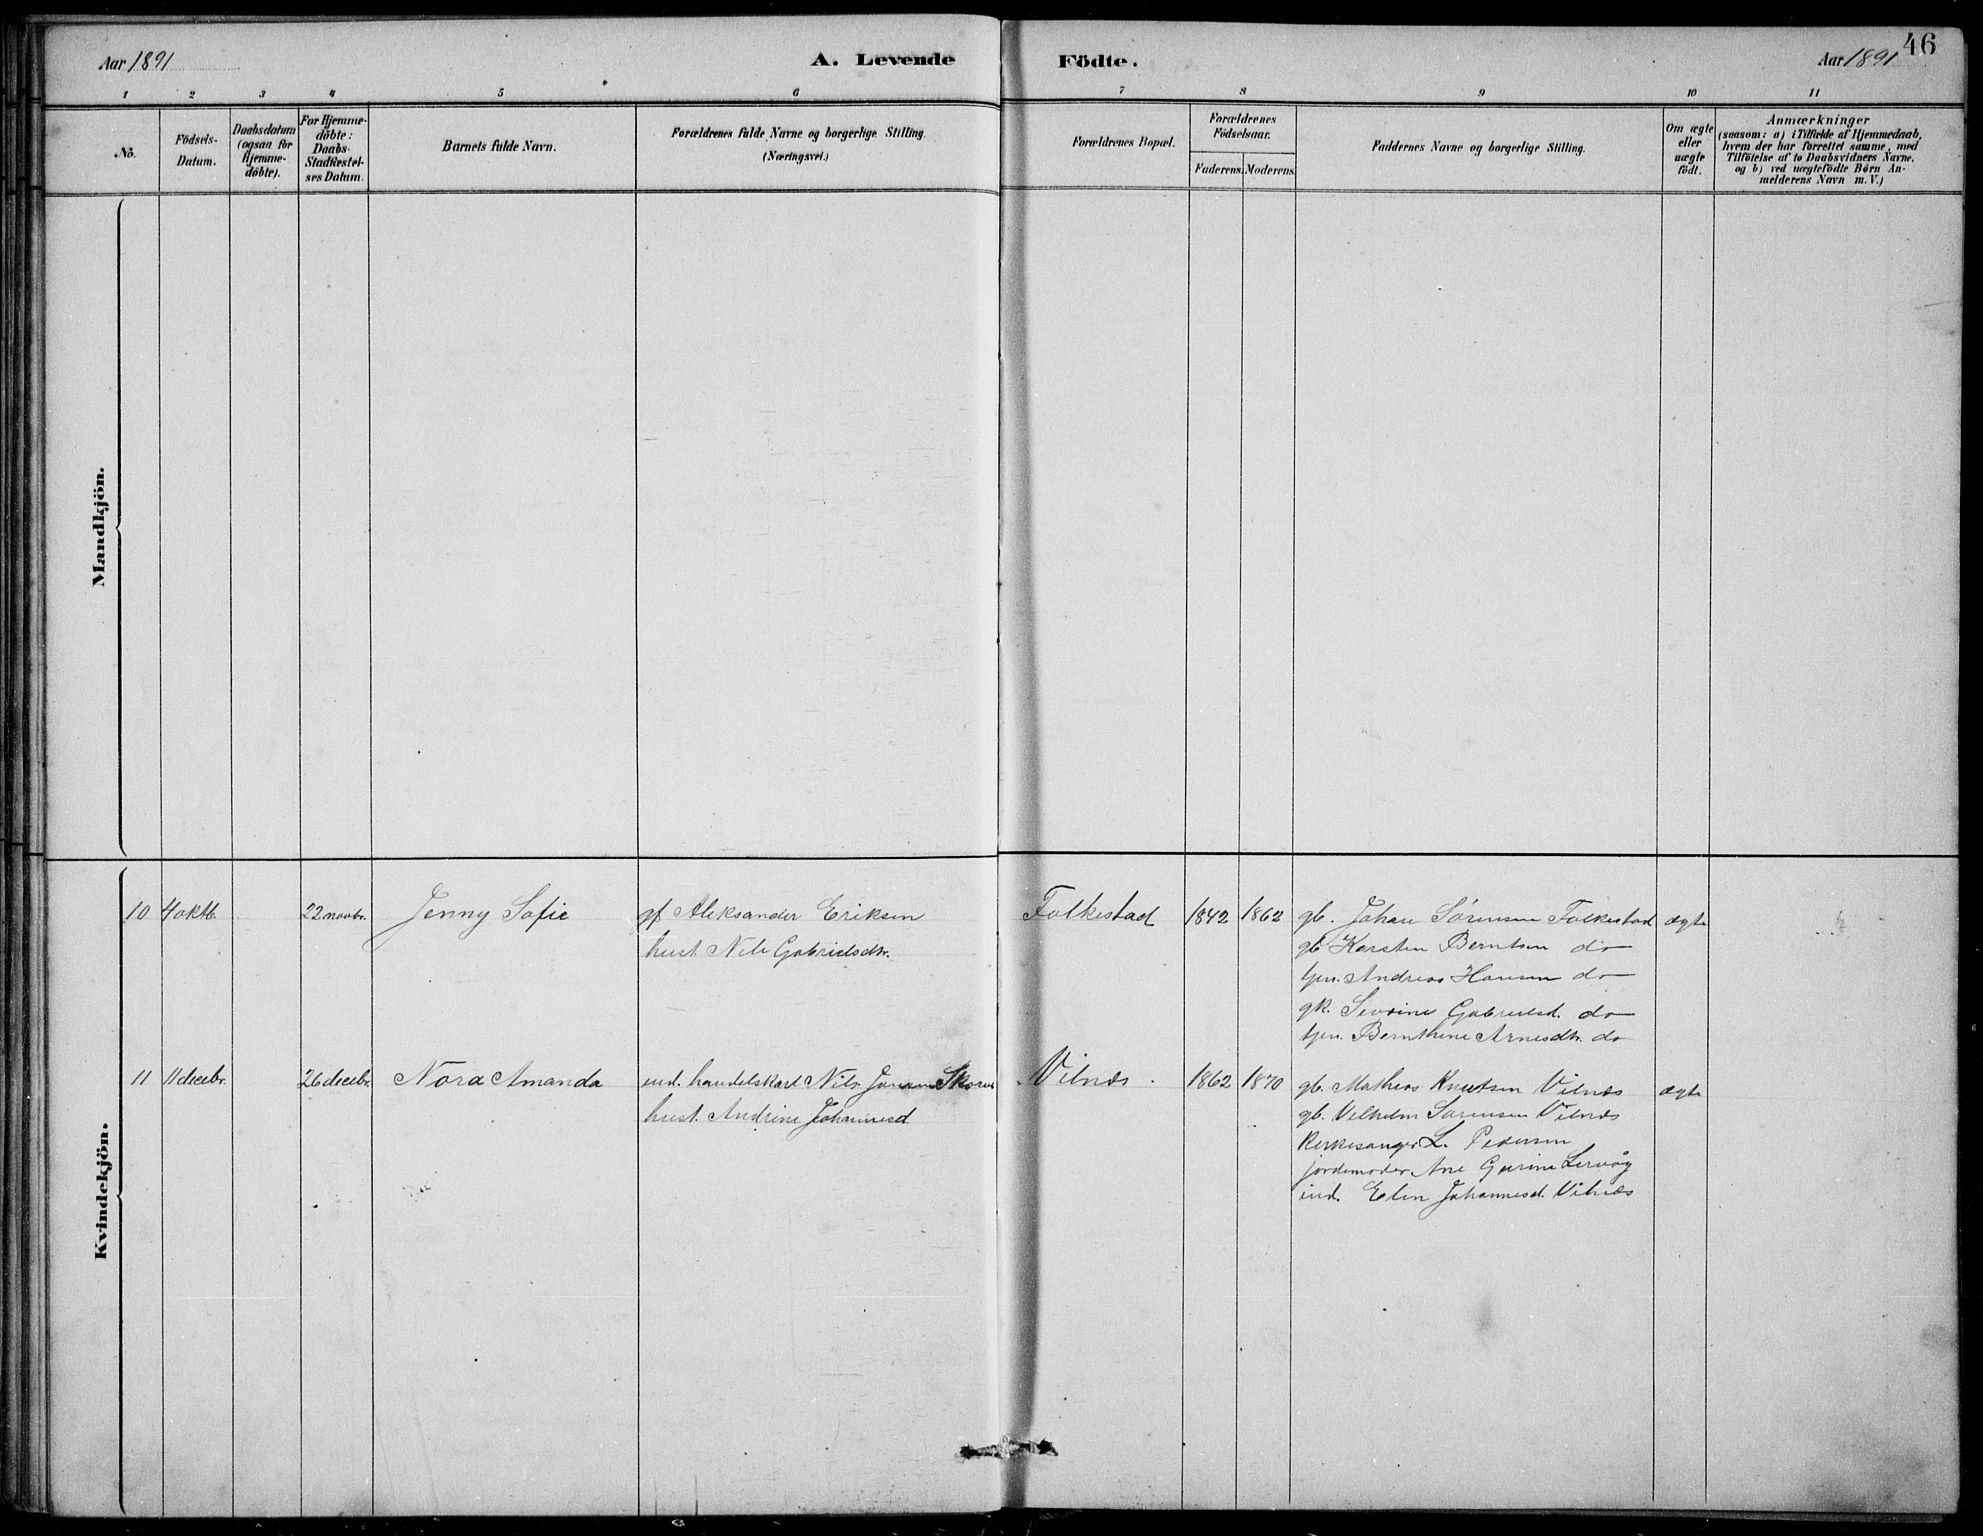 46
Aar 1891
A. Levende
Födte.
Aar 1891
1 2 3 4 5 6 7 8 9 10 11
No.
Födsels-
Datum.
Daabsdatum
(ogsaa for
Hjemme-
döbte).
For Hjemme-
döbte:
Daabs-
Stadfæstel-
ses Datum.
Barnets fulde Navn.
Forældrenes fulde Navne og borgerlige Stilling.
(Næringsvei.)
Forældrenes Bopæl.
Forældrenes
Födselsaar.
Faderens. Moderens.
Faddernes Navne og borgerlige Stilling.
Om ægte
eller
uægte
födt.
Anmærkninger
(saasom: a) i Tilfælde af Hjemmedaab,
hvem der har forrettet samme, med
Tilföielse af to Daabsvidners Navne.
og b) ved uægtefödte Børn An-
melderens Navn m. V.)
Mandkjön.
Kvindekjön.
10 4 oktb. 22 novbr. Jenny Sofie
gf Aleksander Eriksen
hust. Nele Gabrielsdtr.
Folkestad 1842 1862
gb. Johan Sørensen Folkestad ægte
gb Karsten Berntsen do
tjen. Andreas Hansen do
gk. Severine Gabrielsd. do
tjen. Bernthine Arnesdtr. do
11 11 decbr. 26 decbr. Nora Amanda
ind. handelskarl Nils Skorve
hust. Andrine Johannesd.
Vilnæs. 1862 1870
gb. Mathias Knutsen Vilnæs ægte
gb. Vilhelm Sørensen Vilnæs
Kirkesanger L. Pedersen
jordemoder Ane Gurine Lervåg
ind. Elen Johannesd. Vilnæs